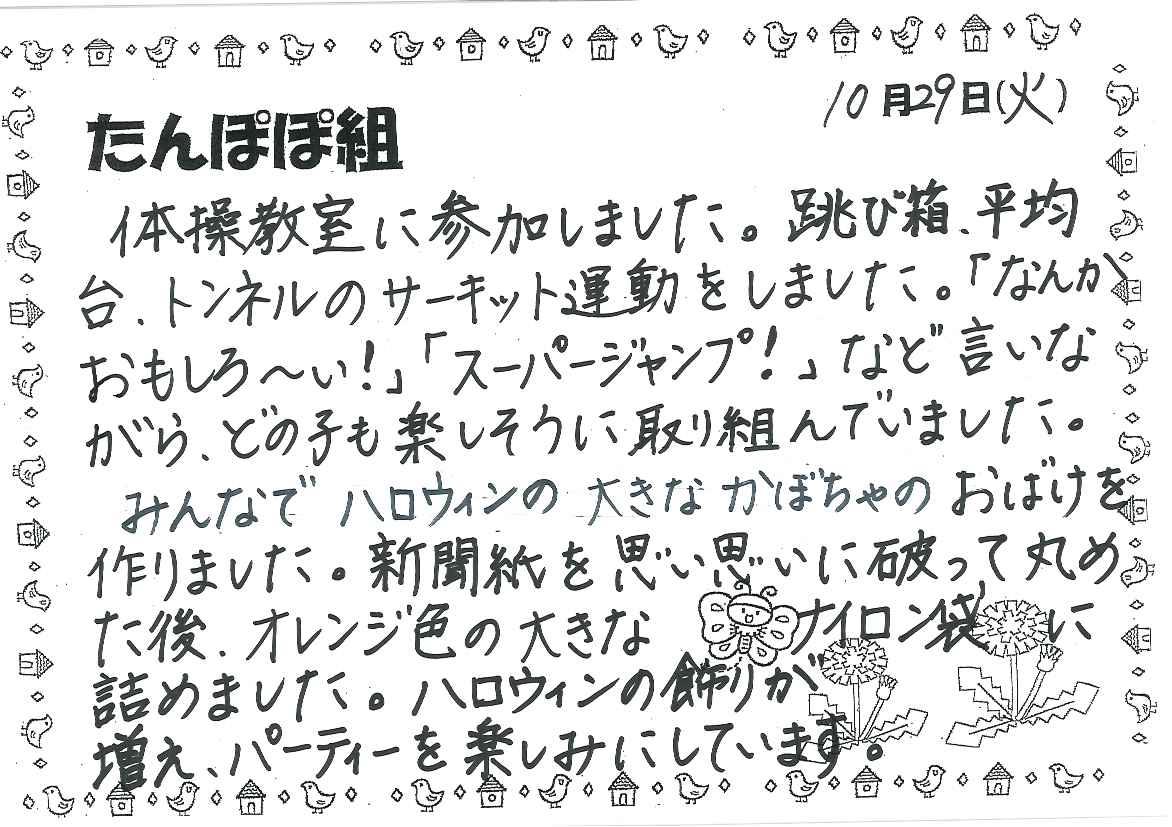 10月29日(火)
たんぽぽ組
体操教室に参加しました。跳び箱、平均
台、トンネルのサーキット運動をしました。「なんか
おもしろ～い!」「スーパージャンプ!」など言いな
がら、どの子も楽しそうに取り組んでいました。
みんなでハロウィンの大きなかぼちゃのおばけを
作りました。新聞紙を思い思いに破って丸め
た後、オレンジ色の大きなナイロン袋に
詰めました。ハロウィンの飾りが
増え、パーティーを楽しみにしています。